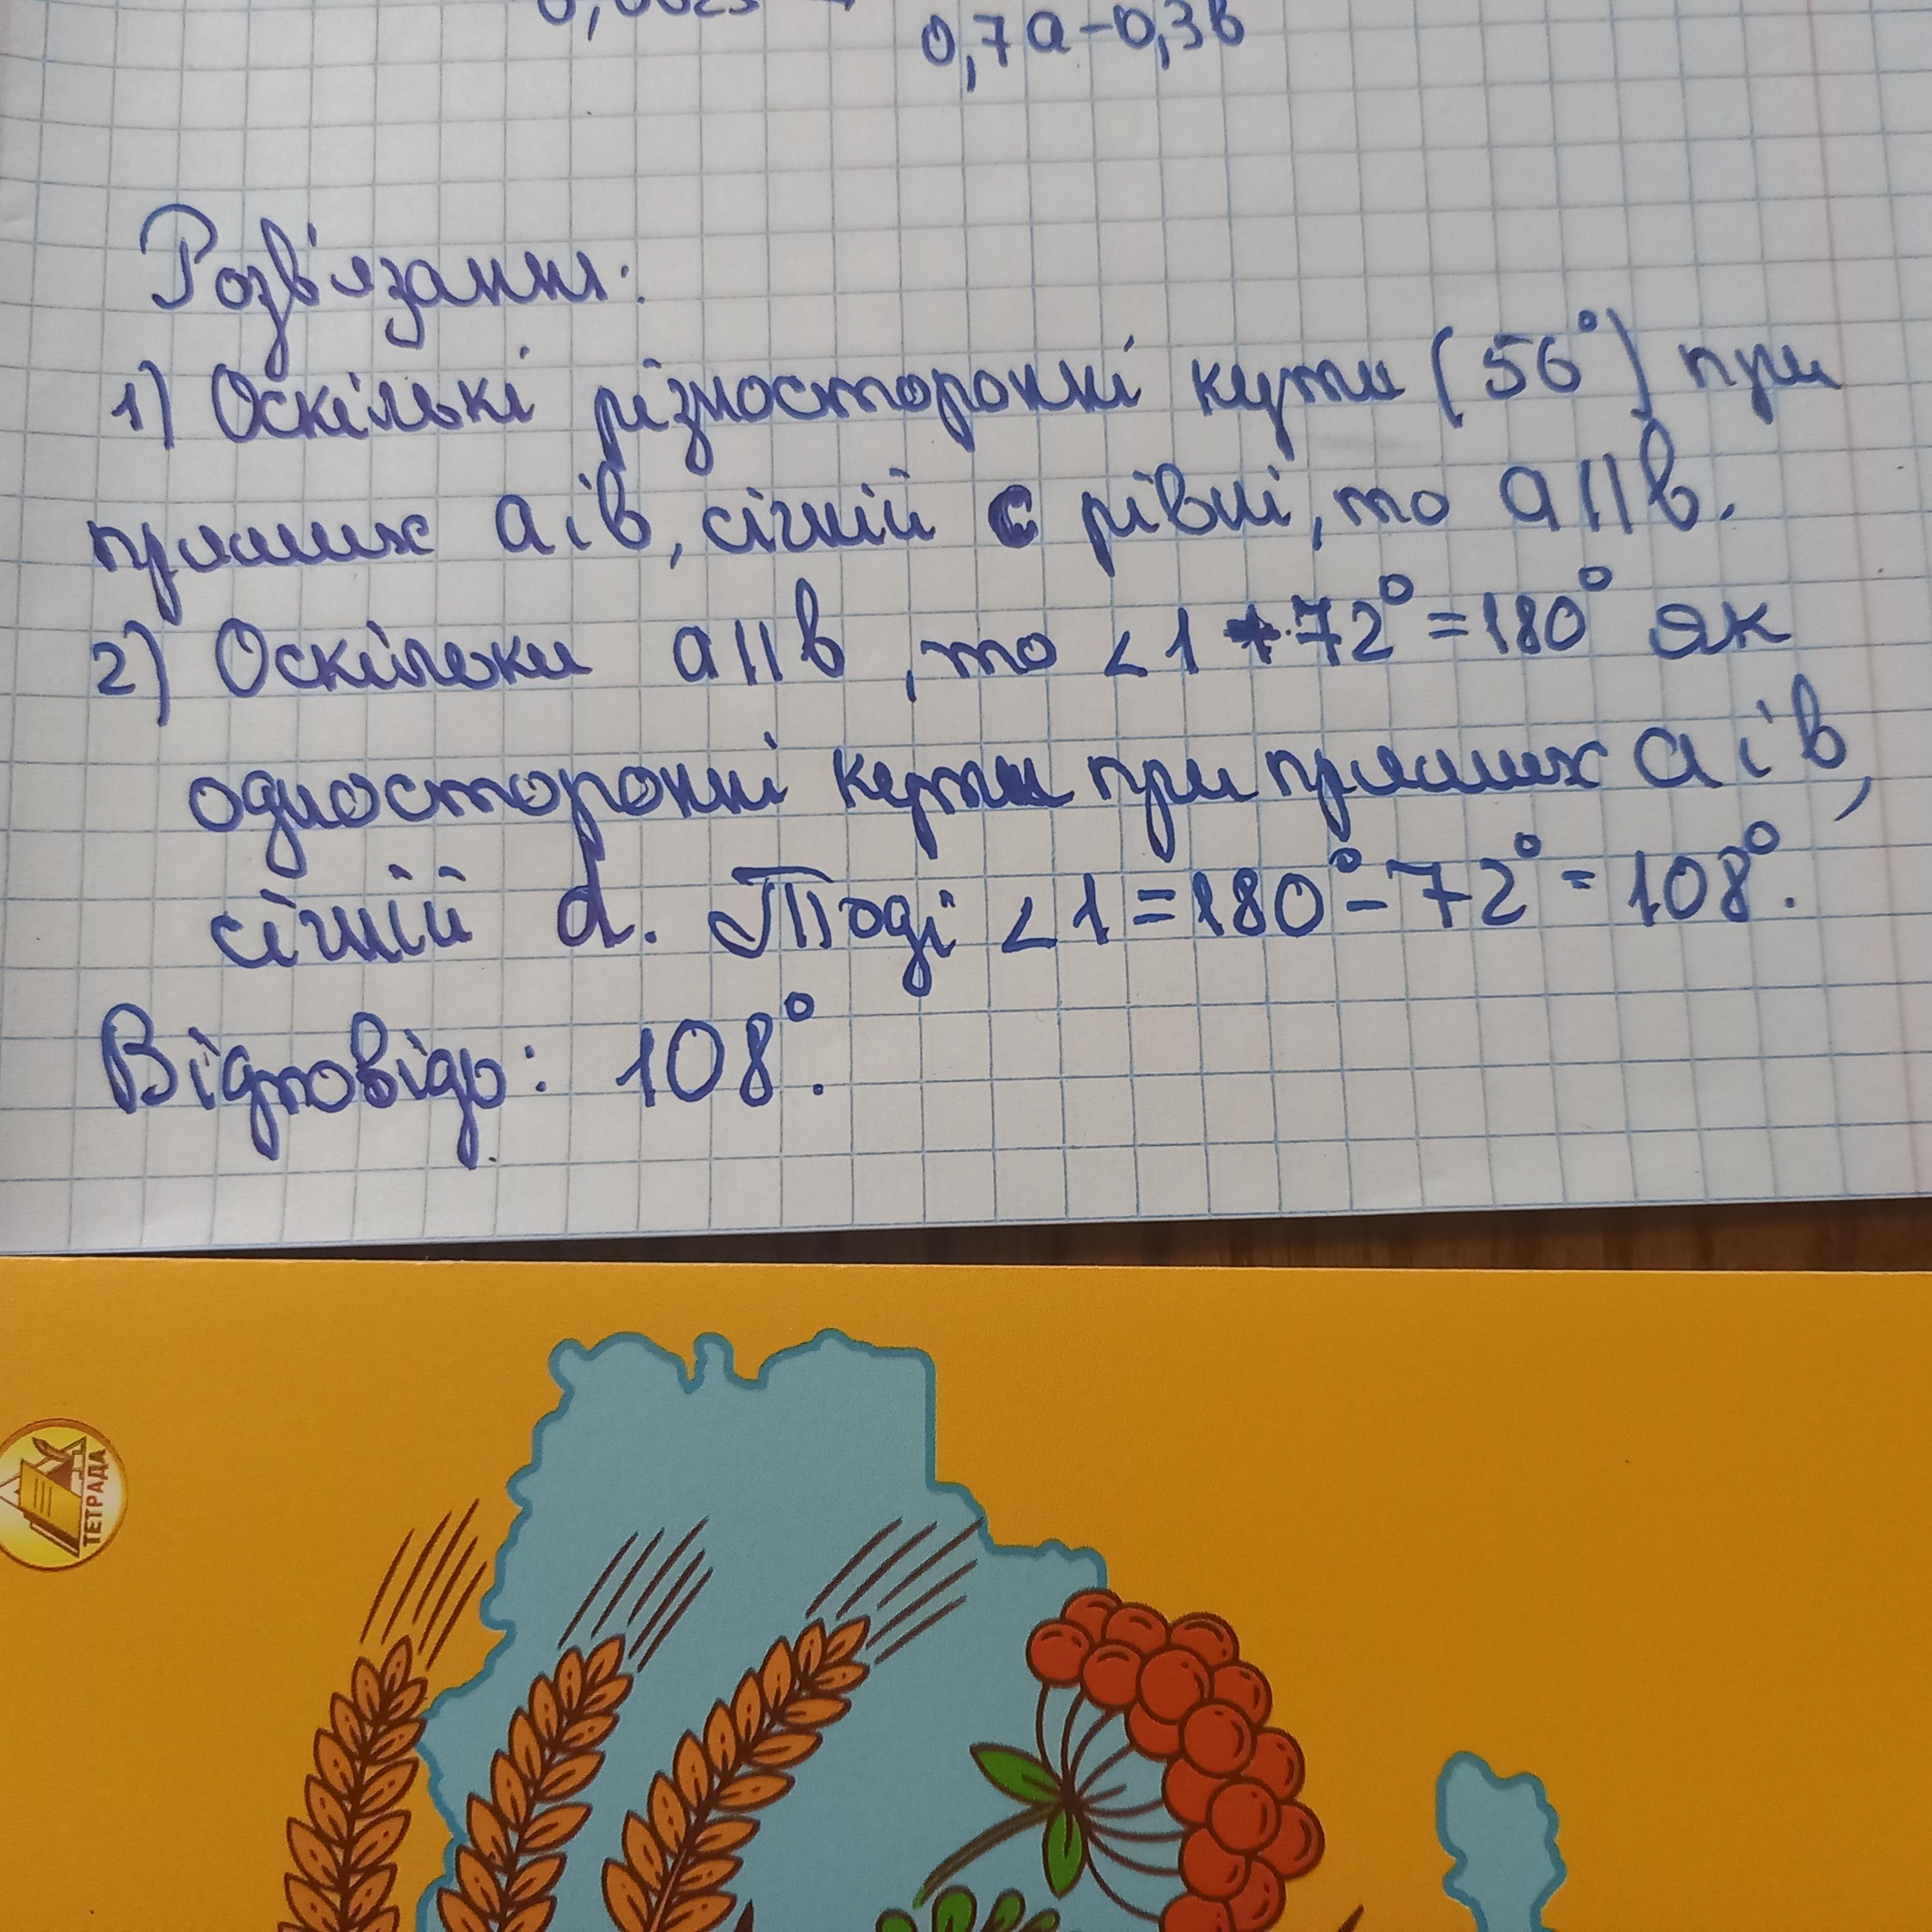 0,7a-0,3b
Розв'язання:
1) Оскількі різносторонні кути (56°) при
прямих a i b, січній c рівні, то a||b.
2) Оскільки a||b, то ∠1 + 72° = 180° як
односторонні кути при прямих a i b,
січній d. Тоді ∠1 = 180° - 72° = 108°.
Відповідь: 108°.
ТЕТРАДА